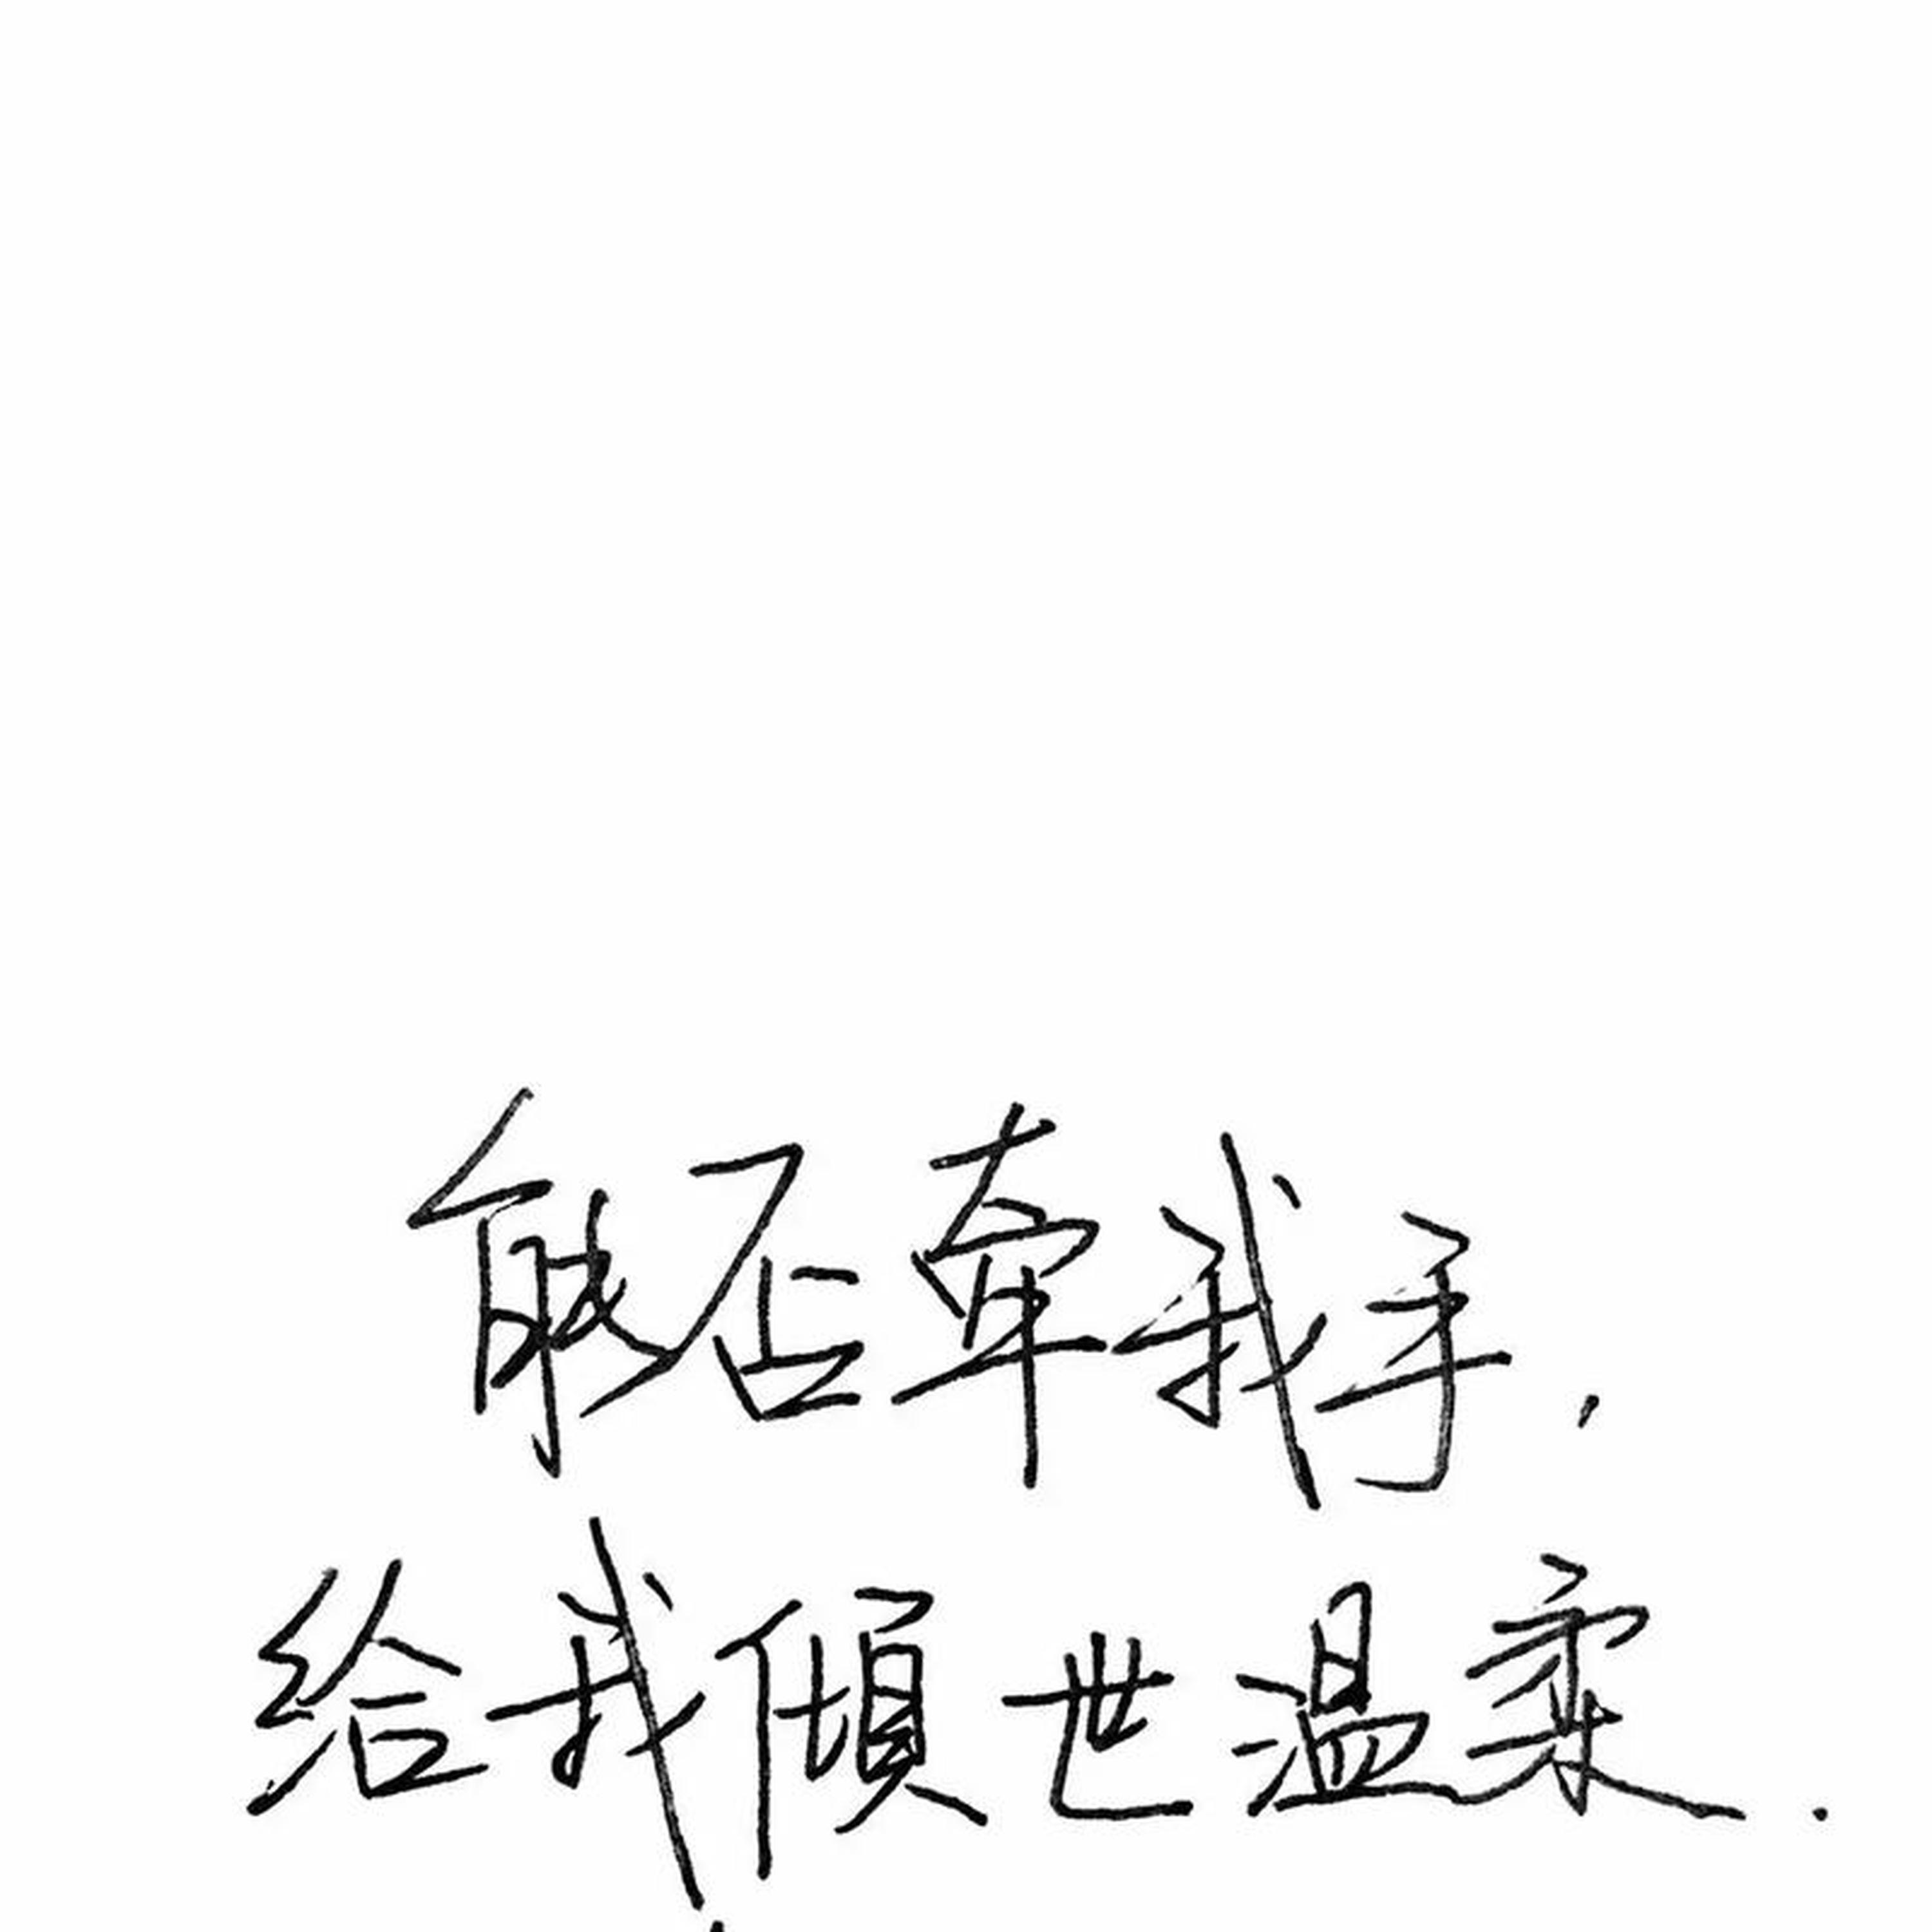 能否牽我手，
给我傾世温柔.